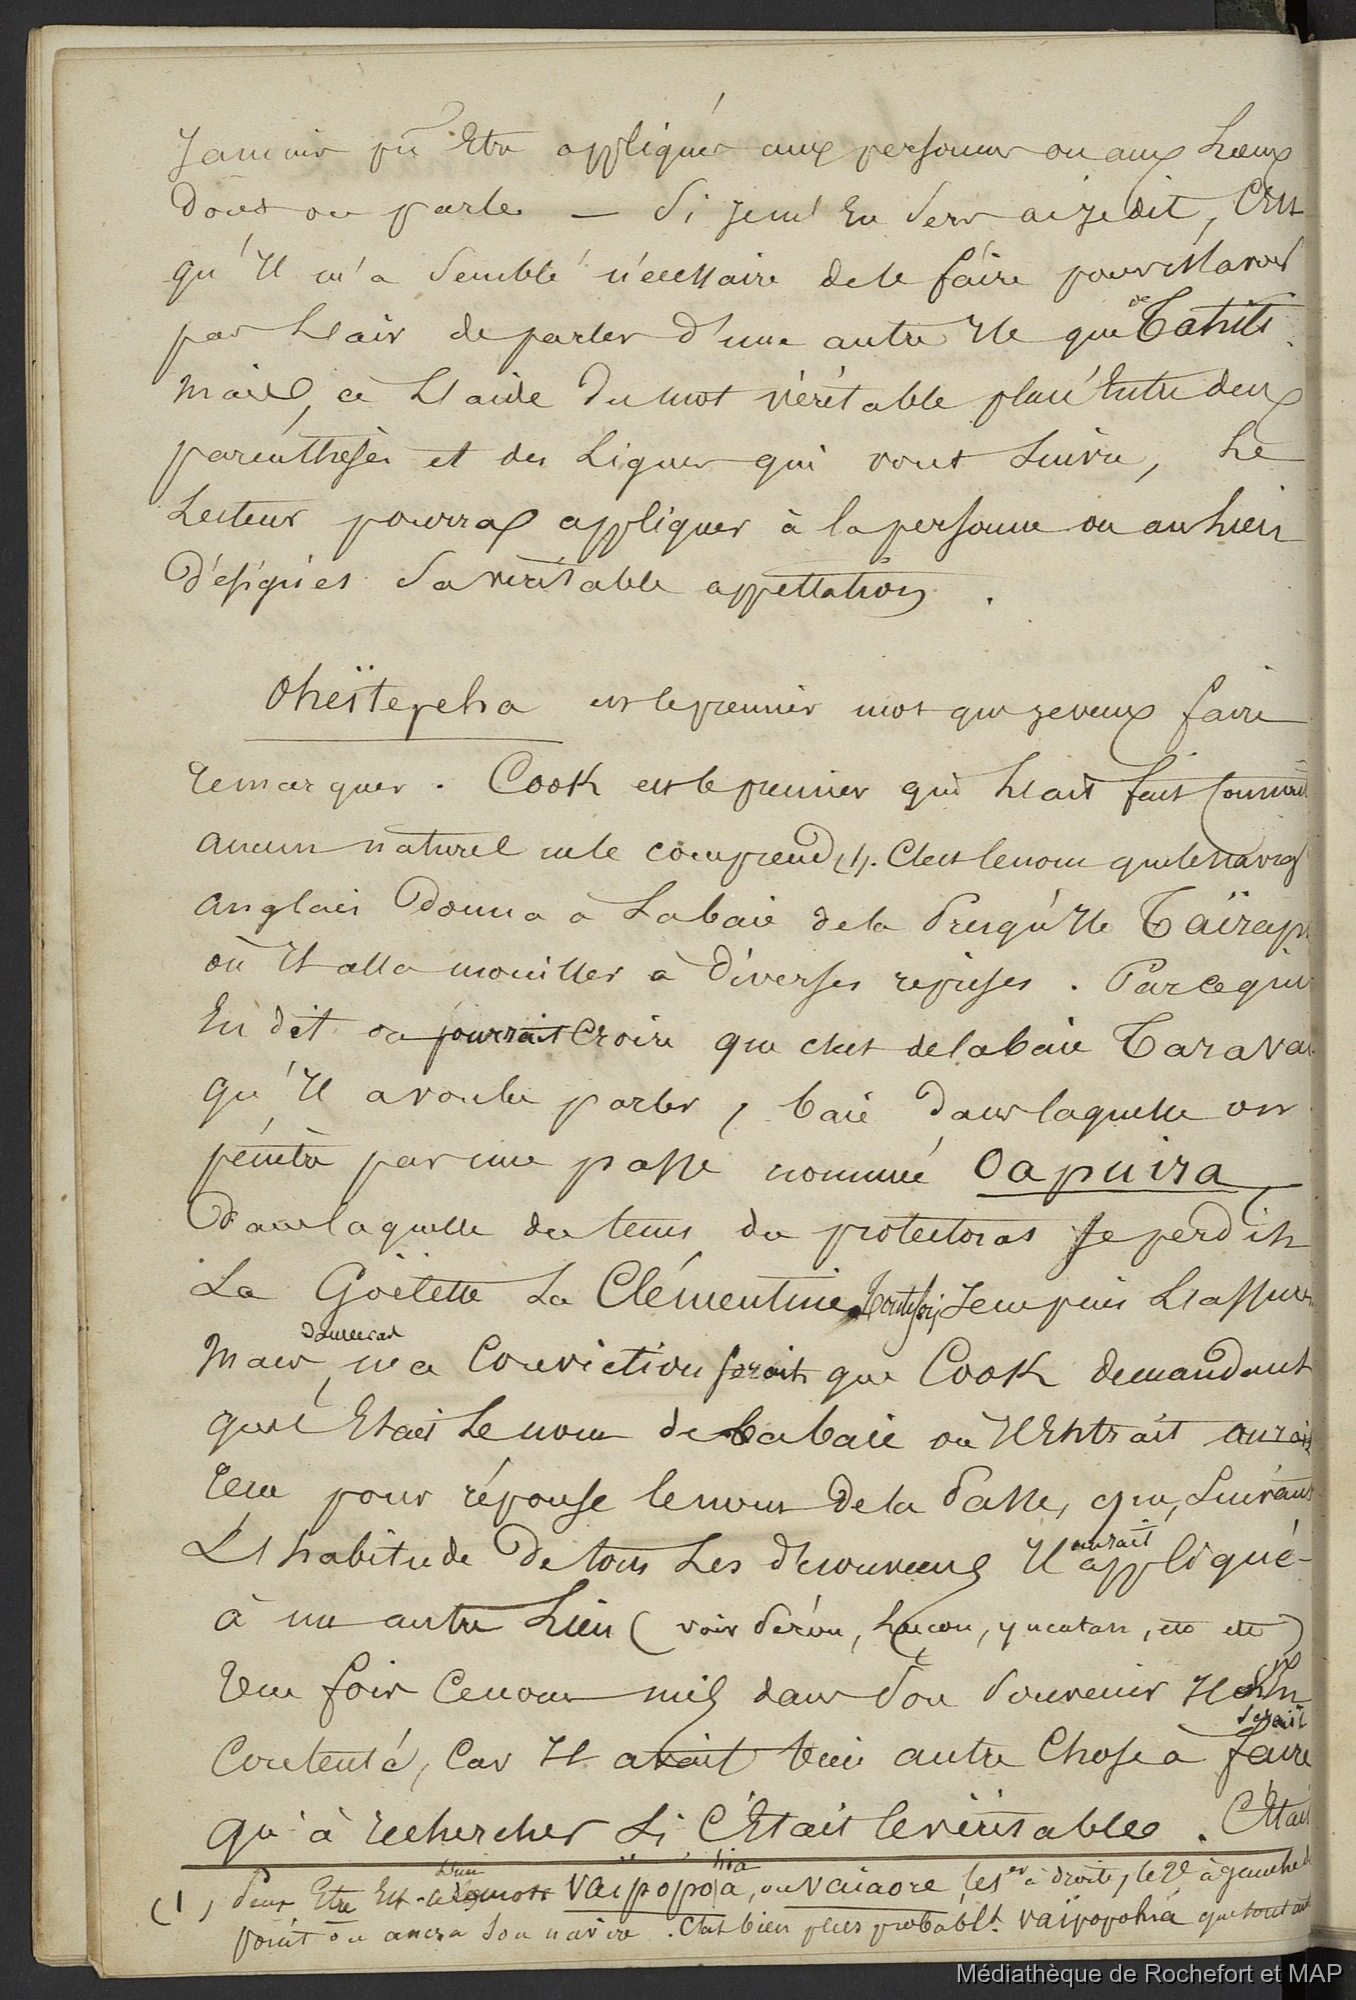 Jamais pu Etre appliqués aux personnes ou aux Lieux
dont on parle — Si je m'En Sers ai je dit, C'Est
qu'Il m'a Semblé nécessaire de le faire pour n'avoir
pas L'air de parler d'une autre Ile que de Tahiti
Mais, à L'aide du mot véritable placé Entre deux
parenthèses et des Lignes qui vont Suivre, Le
Lecteur pourra appliquer à la personne ou au Lieu
Désignés Sa véritable appellation.
Oheïtepeha est le premier mot que je veux faire
remarquer. Cook est le premier qui L'ait fait
aucun naturel ne le comprend (1). C'est le nom que le navig
anglais Donna à La baie de la Presqu'Ile Taïrap
où Il alla mouiller à Diverses reprises. Par ce qu'il
En dit on pourrait Croire que c'est de la baie Tarava
qu'Il a voulu parler, baie Dans laquelle on
pénètre par une passe nommée Oapuira
Dans laquelle du tems du protectorat Se perdit
La Goëlette La Clémentine. Toutefois Je ne puis L'assurer
Mais, dans ce cas ma Conviction serait que Cook demandant
quel Etait Le nom de La baie où Il Entrait aurait
reçu pour réponse le nom De la Passe, que, Suivant
L'habitude De tous Les découvreurs Il aurait appliqué
à un autre Lieu (voir Pérou, Luçon, yucatan, etc etc)
Une fois Ce nom mis dans Son Souvenir Il
Serait
Contenté, Car Il avait bien autre Chose à faire
qu'à rechercher Si C'Etait le véritable. C'Etait
(1) Peut Etre Est-ce L'un vaïpopoa hia, ou vaiaore, les 1er à droite, le 2e à gauche du
point où ancra Son navire. C'est bien plus probablt. vaïpopohia que tout aut
Médiathèque de Rochefort et MAP